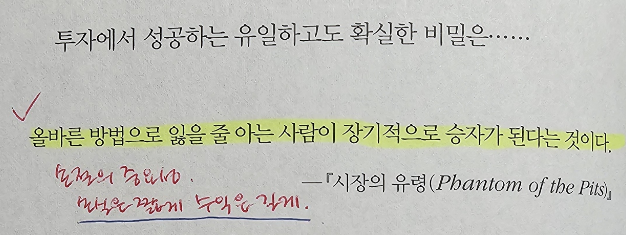 투자에서 성공하는 유일하고도 확실한 비밀은……
올바른 방법으로 잃을 줄 아는 사람이 장기적으로 승자가 된다는 것이다.
손절의 중요성.
―『시장의 유령(Phantom of the Pits)』
손실은 짧게 수익은 길게.